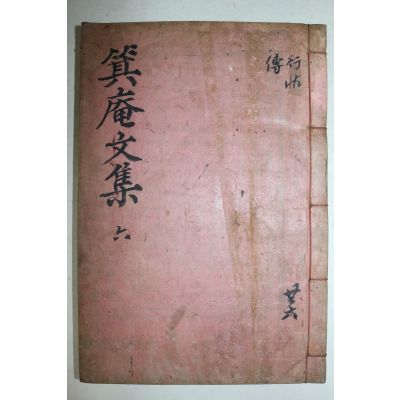 行狀
傳
箕庵文集
六
共六